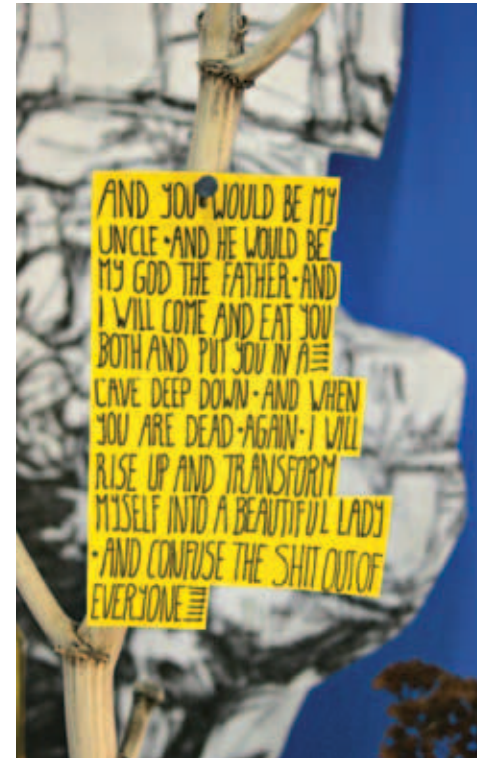 AND YOU WOULD BE MY
UNCLE·AND HE WOULD BE
MY GOD THE FATHER·AND
I WILL COME AND EAT YOU
BOTH AND PUT YOU IN A
CAVE DEEP DOWN·AND WHEN
YOU ARE DEAD·AGAIN·I WILL
RISE UP AND TRANSFORM
MYSELF INTO A BEAUTIFUL LADY
·AND CONFUSE THE SHIT OUTOF
EVERYONE